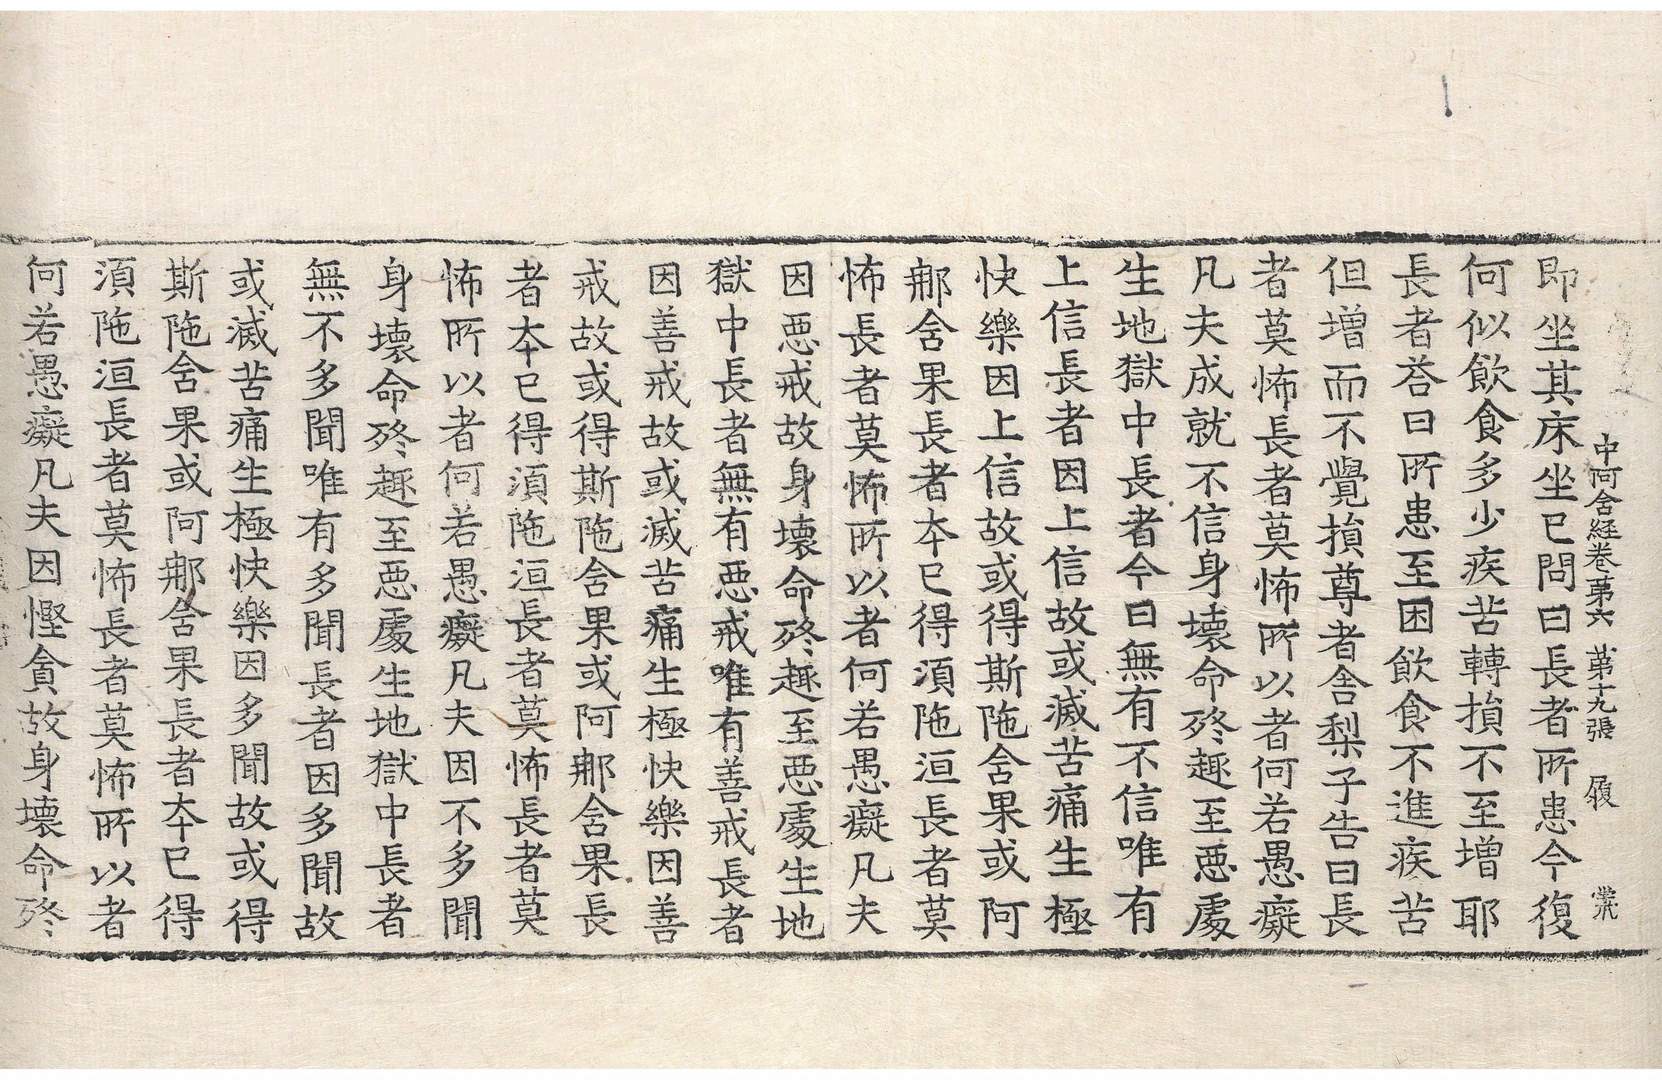 中阿舍経卷苐六　苐十九張　履
即坐其床坐已問曰長者所患今復
何似飲食多少疾苦轉損不至增耶
長者荅曰所患至困飲食不進疾苦
但增而不覺損尊者舍梨子告曰長
者莫怖長者莫怖所以者何若愚癡
凡夫成就不信身壞命終趣至惡處
生地獄中長者今日無有不信唯有
上信長者因上信故或滅苦痛生極
快樂因上信故或得斯陁含果或阿
那含果長者本已得須陁洹長者莫
怖長者莫怖所以者何若愚癡凡夫
因惡戒故身壞命終趣至惡處生地
獄中長者無有惡戒唯有善戒長者
因善戒故或滅苦痛生極快樂因善
戒故或得斯陁含果或阿那含果長
者本已得須陁洹長者莫怖長者莫
怖所以者何若愚癡凡夫因不多聞
身壞命終趣至惡處生地獄中長者
無不多聞唯有多聞長者因多聞故
或滅苦痛生極快樂因多聞故或得
斯陁含果或阿那含果長者本已得
須陁洹長者莫怖長者莫怖所以者
何若愚癡凡夫因慳貪故身壞命終